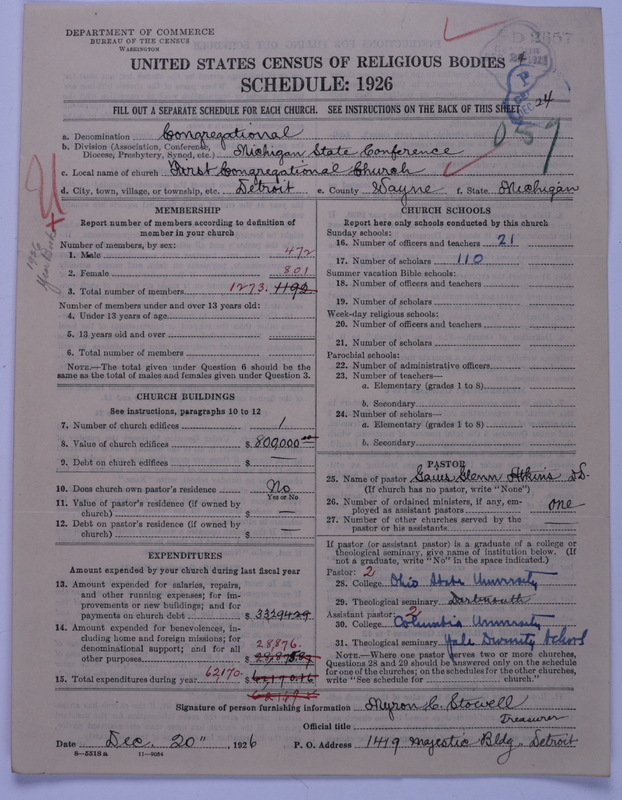 DEPARTMENT OF COMMERCE
BUREAU OF THE CENSUS
WASHINGTON
UNITED STATES CENSUS OF RELIGIOUS BODIES
SCHEDULE: 1926
FILL OUT A SEPARATE SCHEDULE FOR EACH CHURCH. SEE INSTRUCTIONS ON THE BACK OF THIS SHEET
24
057
a. Denomination Congregational
b. Division (Association, Conference, Diocese, Presbytery, Synod, etc.) Michigan State Conference
c. Local name of church First Congregational Church
d. City, town, village, or township, etc. Detroit e. County Wayne f. State Michigan
1926
MEMBERSHIP
Report number of members according to definition of
member in your church
Number of members, by sex:
1. Male 472
2. Female 801
3. Total number of members 1273. 1192
Number of members under and over 13 years old:
4. Under 13 years of age
5. 13 years old and over
6. Total number of members
NOTE.—The total given under Question 6 should be the
same as the total of males and females given under Question 3.
CHURCH BUILDINGS
See instructions, paragraphs 10 to 12
7. Number of church edifices 1
8. Value of church edifices $ 800,000 00
9. Debt on church edifices $ —
10. Does church own pastor's residence No
Yes or No
11. Value of pastor's residence (if owned by
church) $ —
12. Debt on pastor's residence (if owned by
church) $ —
EXPENDITURES
Amount expended by your church during last fiscal year
13. Amount expended for salaries, repairs,
and other running expenses; for im-
provements or new buildings; and for
payments on church debt $ 33294 29
14. Amount expended for benevolences,
including home and foreign missions; for
denominational support; and for all
other purposes 28,876.
15. Total expenditures during year 62170.
CHURCH SCHOOLS
Report here only schools conducted by this church
Sunday schools:
16. Number of officers and teachers 21
17. Number of scholars 110
Summer vacation Bible schools:
18. Number of officers and teachers
19. Number of scholars
Week-day religious schools:
20. Number of officers and teachers
21. Number of scholars
Parochial schools:
22. Number of administrative officers
23. Number of teachers—
a. Elementary (grades 1 to 8)
b. Secondary
24. Number of scholars—
a. Elementary (grades 1 to 8)
b. Secondary
PASTOR
25. Name of pastor Gaius Glenn Atkins D.D.
(If church has no pastor, write "None")
26. Number of ordained ministers, if any, em-
ployed as assistant pastors one
27. Number of other churches served by the
pastor or his assistants —
If pastor (or assistant pastor) is a graduate of a college or
theological seminary, give name of institution below. (If
not a graduate, write "No" in the space indicated.)
Pastor: 2
28. College Ohio State University
29. Theological seminary Dartmouth
Assistant pastor: 2
30. College Columbia University
31. Theological seminary Yale Divinity School
NOTE.—Where one pastor serves two or more churches,
Questions 28 and 29 should be answered only on the schedule
for one of the churches; on the schedules for the other churches,
write "See schedule for church."
Signature of person furnishing information Myron C. Stowell
Official title Treasurer
Date Dec. 20", 1926 P. O. Address 1419 Majestic Bldg, Detroit
8—5518a 11—9054